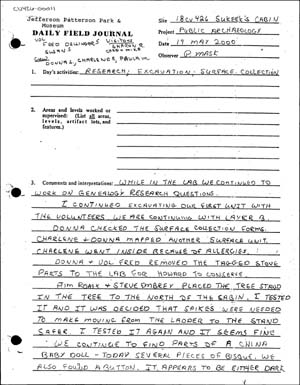 Jefferson Patterson Park &
Museum
DAILY FIELD JOURNAL
Site 18CV426 SUKEEK'S CABIN
Project PUBLIC ARCHAEOLOGY
Date 19 MAY 2000
Observer
1. Day's activities: RESEARCH, EXCAVATION, SURFACE COLLECTION
2. Areas and levels worked or
supervised: (List all areas,
levels, artifact lots, and
features.)
3. Comments and interpretations: WHILE IN THE LAB WE CONTINUED TO
WORK ON GENEALOGY RESEARCH QUESTIONS.
I CONTINUED EXCAVATING OUR FIRST UNIT WITH
THE VOLUNTEERS WE ARE CONTINUING WITH LAYER B.
DONNA CHECKED THE SURFACE COLLECTION FORMS.
CHARLENE & DONNA MAPPED ANOTHER SURFACE UNIT.
CHARLENE WENT INSIDE BECAUSE OF ALLERGIES.
DONNA & VOL FRED REMOVED THE TAGGED STOVE
PARTS TO THE LAB FOR HOWARD TO CONSERVE.
JIM & STEVE PLACED THE TREE STAND
IN THE TREE TO THE NORTH OF THE CABIN. I TESTED
IT AND IT WAS DECIDED THAT SPIKES WERE NEEDED
TO MAKE MOVING FROM THE LADDER TO THE STAND
SAFER. I TESTED IT AGAIN AND IT SEEMS FINE.
WE CONTINUE TO FIND PARTS OF A CHINA
BABY DOLL - TODAY SEVERAL PIECES OF BISQUE. WE
ALSO FOUND A BUTTON. IT APPEARS TO BE EITHER DARK